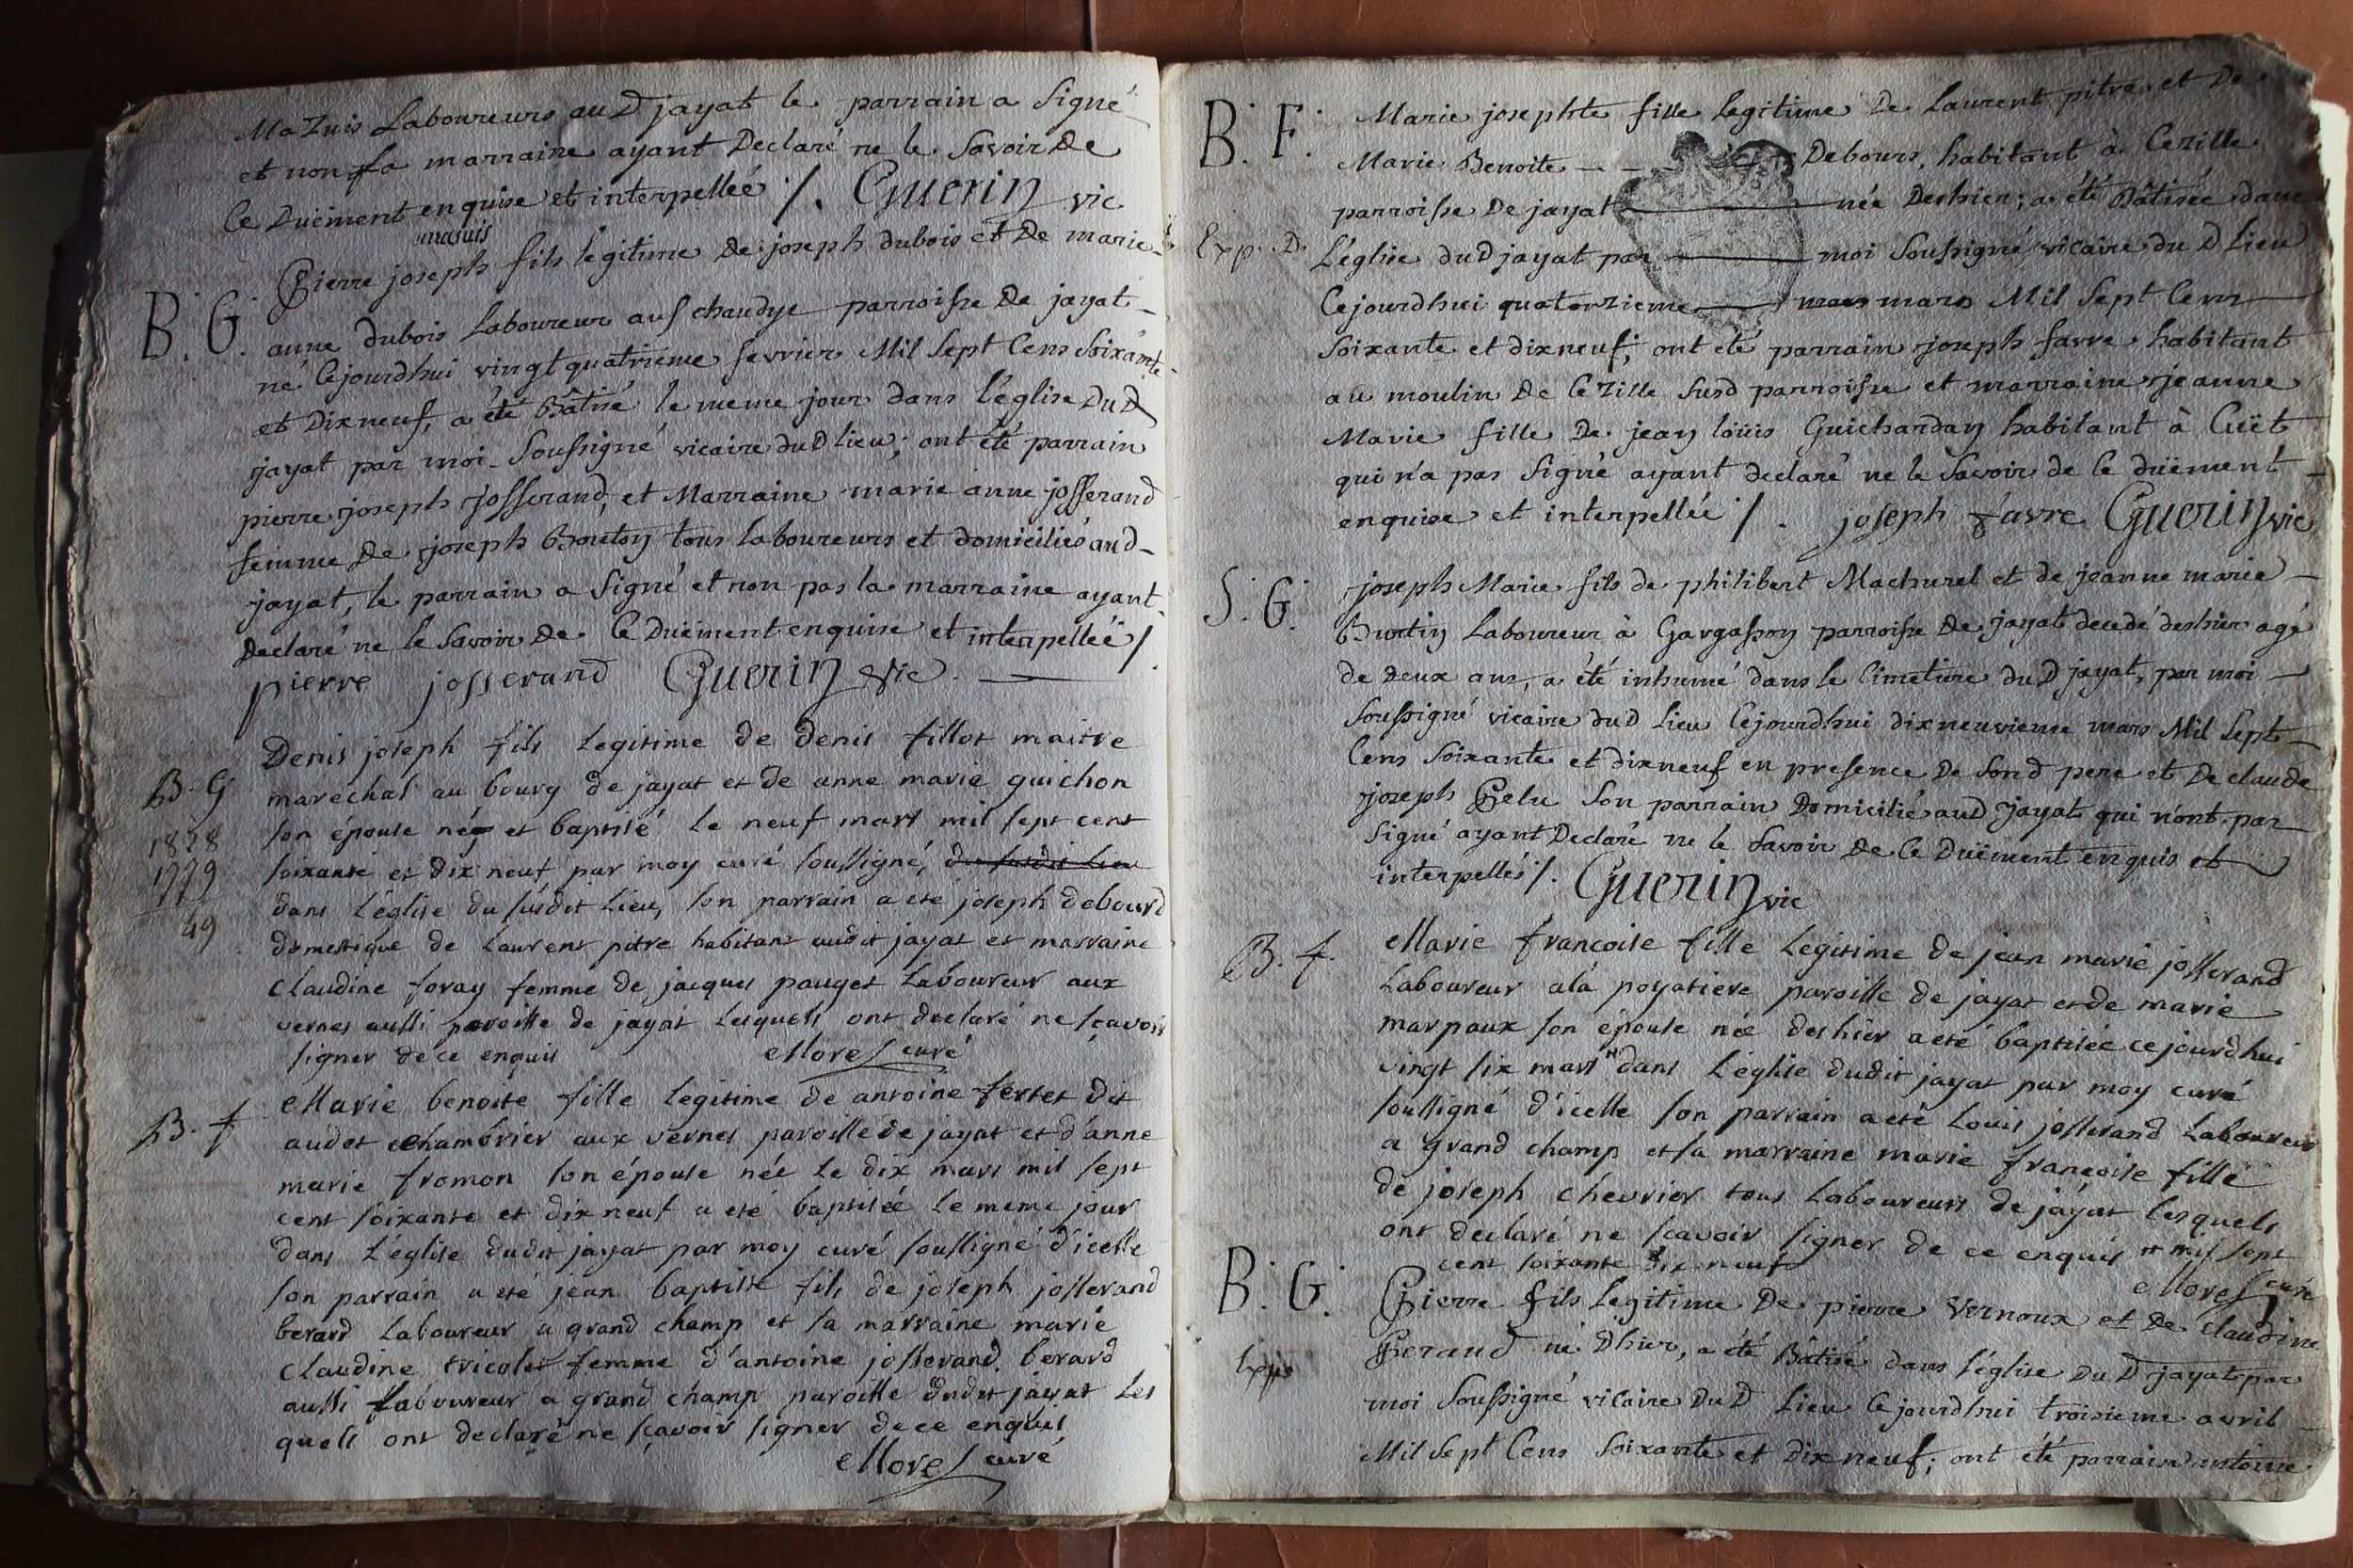 Mazuis Laboureurs au D jayat le parrain a Signé
et non la marraine ayant Declaré ne le Savoir De
Ce Duëment enquise et interpellée ./. Guerin vic
masuis
Pierre joseph fils légitime De joseph dubois et De marie
B. G. anne dubois Laboureur aus chaudye parroisse De jayat
né Cejourdhui vingt quatrieme fevrier Mil Sept Cens Soixante
et Dixneuf, a été Bâtisé le meme jour dans l'église Du D
jayat par moi Soussigné vicaire du D lieu; ont été parrain
pierre joseph Josserand, et Marraine marie anne josserand
femme De joseph Bouton tous laboureurs et domiciliés aud
jayat, le parrain a Signé et non pas la marraine ayant
Declaré ne le Savoir De Ce Duëment enquise et interpellée /.
pierre josserand Guerin vic.
Denis joseph fils legitime de denis fillot maitre
B. G marechal au bourg de jayat et de anne marie guichon
1828 son épouse né et baptisé le neuf mars mil sept cent
1779 soixante et dix neuf par moy curé soussigné, du susdit Lieu
dans l'église du susdit Lieu, son parrain a eté joseph debourd
49 domestique de Laurent pitre habitant audit jayat et marraine
claudine foray femme de jacques pauget Laboureur aux
vernes aussi paroisse de jayat lesquels ont declaré ne sçavoir
signer de ce enquis Morel curé
B. f Marie benoite fille legitime de antoine fertet dit
audet chambrier aux vernes paroisse de jayat et d'anne
marie fromon son épouse née le dix mars mil sept
cent soixante et dix neuf a eté baptisée le meme jour
dans l'église dudit jayat par moy curé soussigné d'icelle
son parrain a eté jean baptiste fils de joseph josserand
berard Laboureur a grand champ et sa marraine marie
claudine tricolet femme d'antoine josserand berard
aussi laboureur a grand champ paroisse dudit jayat les
quels ont declaré ne sçavoir signer de ce enquis
Morel curé
B. F. Marie josephte fille legitime De Laurent pitre et De
Marie Benoite Debours, habitant à Cezille
parroisse De jayat née Deshier; a été Bâtisée dans
Exp. D. L'église du D jayat par moi Soussigné vicaire du D Lieu
Cejourdhui quatorzieme mars mars Mil Sept Cens
Soixante et dixneuf; ont été parrain joseph favre habitant
au moulin De Cezille susd parroisse et marraine jeanne
Marie fille De jean loüis Guichardan habitant à Cuët
qui n'a pas Signé ayant declaré ne le Savoir de Ce duëment
enquise et interpellée /. joseph favre Guerin vic
S. G. joseph Marie fils de philibert Machurel et de jeanne marie
Burtin Laboureur à Gargasson parroisse De jayat decedé deshier agé
de deux ans, a été inhumé dans le Cimetiere du D jayat, par moi
Soussigné vicaire du D Lieu Cejourdhui dix neuvieme mars Mil Sept
Cens Soixante et dixneuf en presence De Sond pere et De claude
joseph Pelu Son parrain Domicilié aud Jayat qui n'ont pas
Signé ayant Declaré ne le Savoir De Ce Duëment enquis et
interpellés /. Guerin vic
B. f. Marie francoise fille legitime de jean marie josserand
Laboureur a la poyatiere paroisse de jayat et de marie
marpaux son épouse née deshier a eté baptisée ce jourdhui
vingt six mars # dans l'église dudit jayat par moy curé
soussigné d'icelle son parrain a eté Louis josserand Laboureur
a grand champ et sa marraine marie françoise fille
de joseph chevrier tous Laboureurs de jayat lesquels
ont declaré ne sçavoir signer de ce enquis # mil sept
cent soixante dix neuf
Morel curé
B. G. Pierre fils legitime De pierre Vernoux et De claudine
Peraud né Dhier, a été Bâtisé dans l'église Du D jayat par
moi Soussigné vicaire Du D Lieu Cejourdhui troisieme avril
Mil Sept Cens Soixante et Dixneuf; ont été parrain antoine